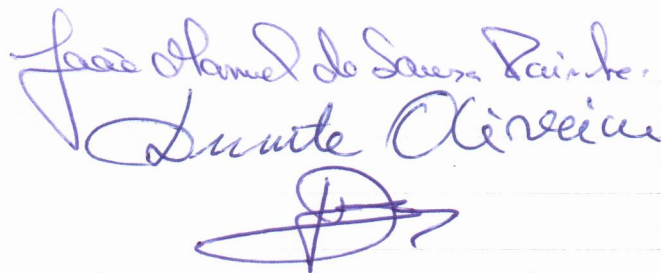 João Manuel de Sousa
Duarte Oliveira